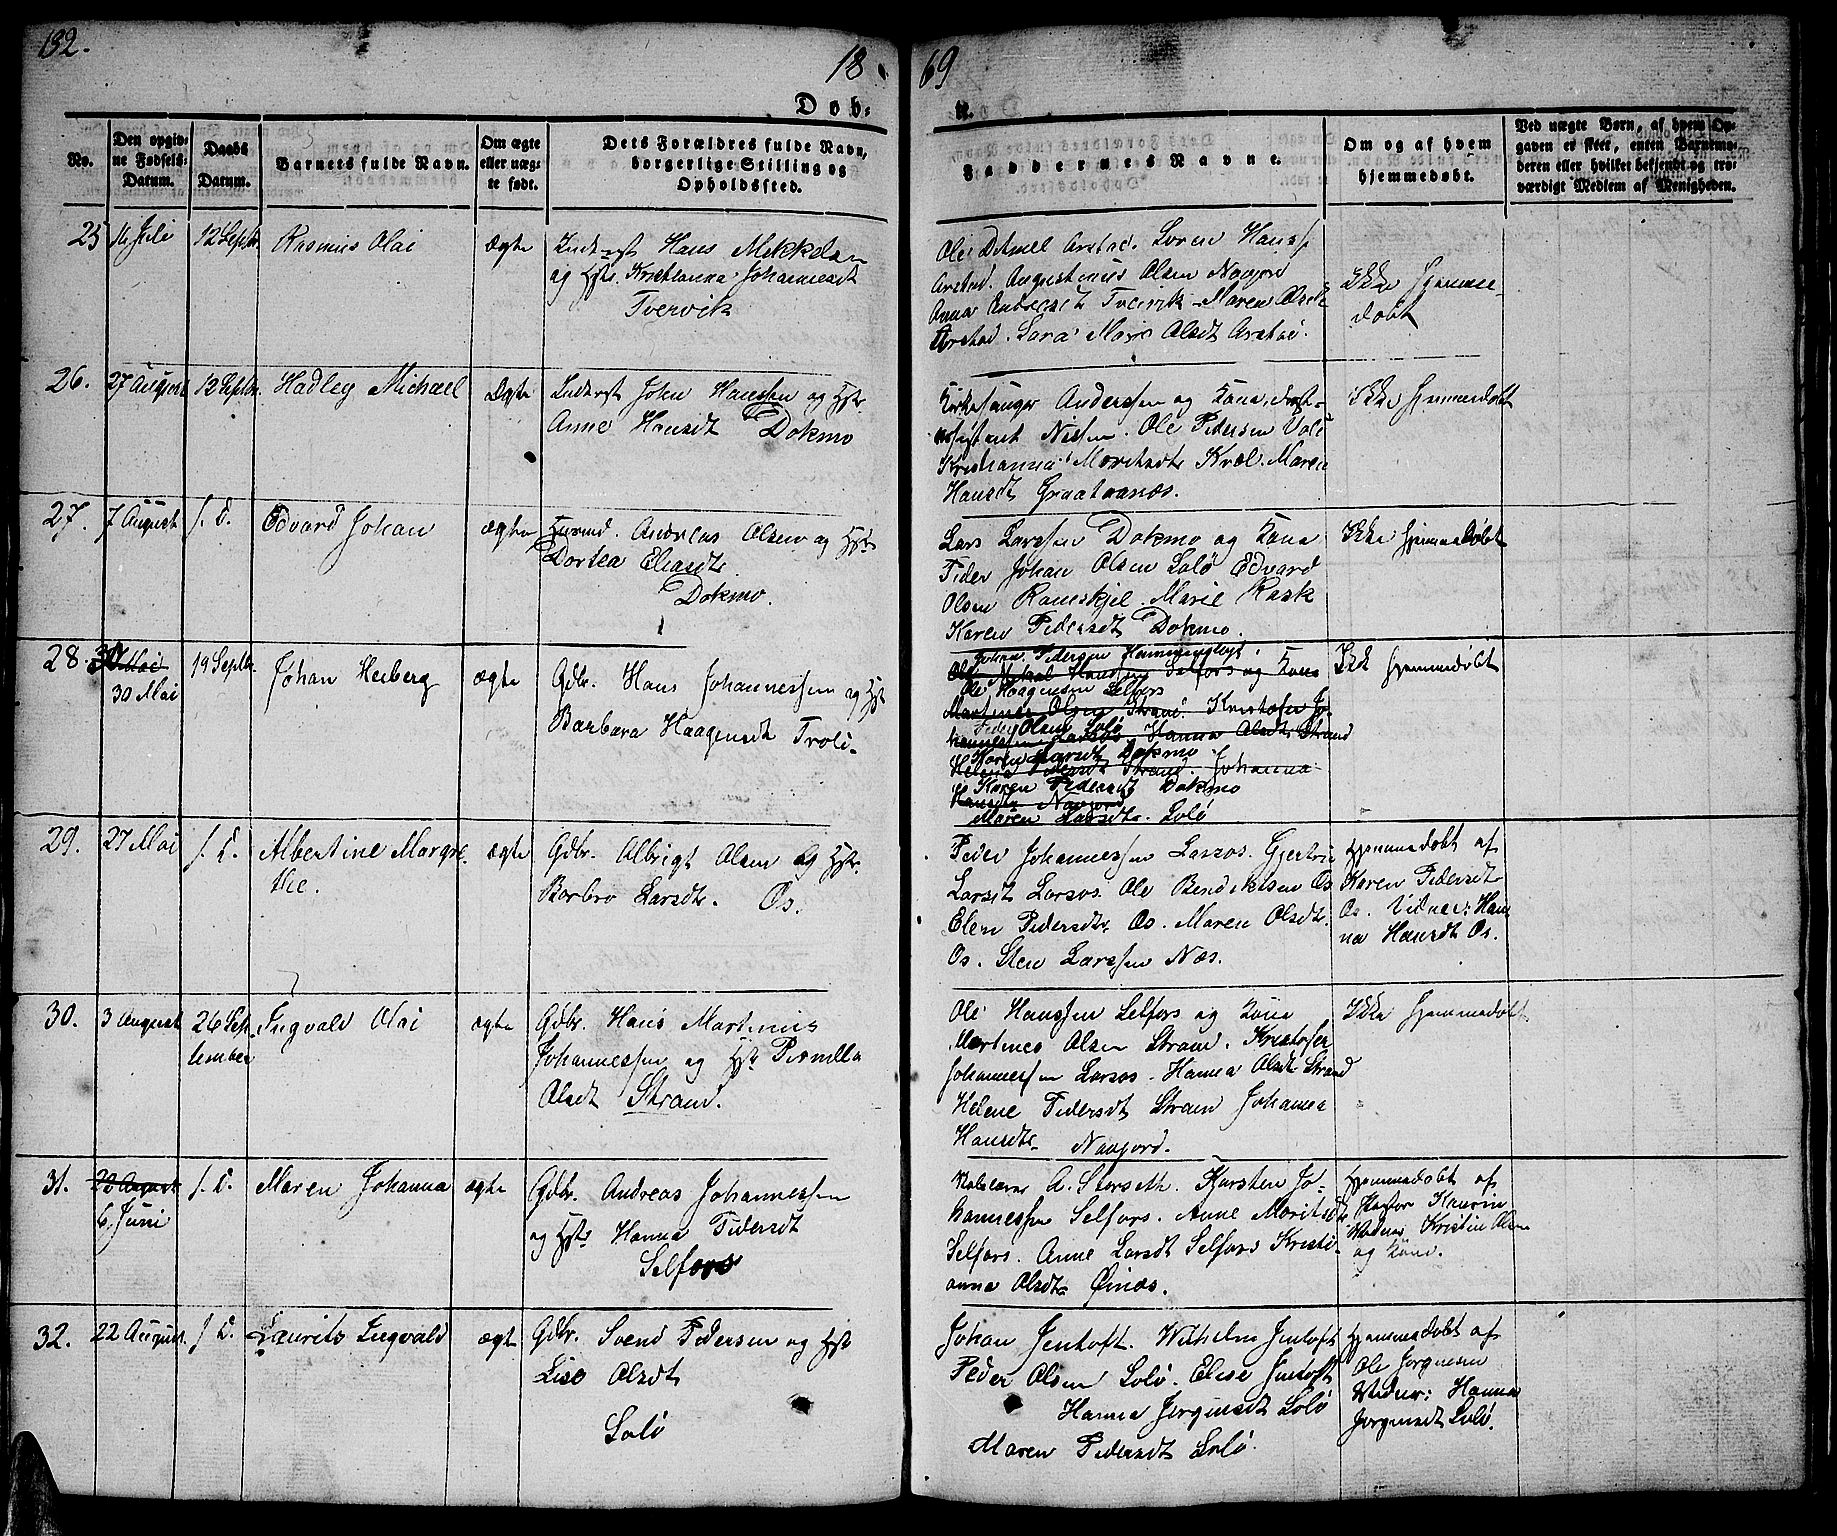 132.
18
69
Døb-
te.
No.
Den opgiv-
ne Fødsels-
Datum.
Daabs
Datum.
Barnets fulde Navn.
Om ægte
eller uæg-
te født.
Dets Forældres fulde Navn,
borgerlige Stilling og
Opholdssted.
Faddernes Navne.
Om og af hvem
hjemmedøbt.
Ved uægte Børn, af hvem Op-
gaven er skeet, enten Barnemo-
deren eller hvilket bekjendt og tro-
værdigt Medlem af Menigheden.
25
14 Juli
12 Septbr.
Rasmus Olai
ægte
Inderst Hans Mekkelsen
og Hstr. Kristianna Johannesdt
Tvervik
Ole Detmel Arstad. Søren Hanss.
Arstad. Augustinus Olsen Navjord
Anna Andersdt Tvervik. Maren Olsdt
Arstad. Sara Marie Olsdt Arstad.
Ikke hjemme-
døbt
26.
27 August
12 Septbr.
Hadley Michael
Ægte
Inderst John Hanssen og Hstr.
Anne Hansdt Dokmo
Kirkesanger Anderssen og Kona,
Nissen. Ole Pedersen
Kristianna Moritsdt Kvæl. Maren
Hansdt Graataanæs.
Ikke hjemmedøbt
27.
7 August
s. D.
Edvard Johan
ægte
Husmd. Andreas Olsen og Hstr
Dortea Eliasdt
Dokmo.
Lars Larssen Dokmo og Kona
Peder Johan Olsen Solø Edvard
Olsen Ramskjel. Marie Rask
Karen Pedersdt Dokmo.
Ikke hjemmedøbt
28.
30 Mai
30 Mai
19 Septbr.
Johan Heiberg
ægte
Gdbr. Hans Johannessen og Hstr
Barbara Haagensdt Troli-
Johan Pedersen
Ole Hanssen Selfors og Kona
Ole Haagensen Selfors
Martines Olsen Strand. Kristofer Jo-
Peder Olsen Solø
hannessen Larsos Hanna Olsdt Strand
Karen Larsdt Dokmo
Helene Pedersdt Strand. Johanna
Karen Pedersdt Dokmo
Hansdt Navjord
Maren Larsdt. Solø
Ikke hjemmedøbt
29.
27 Mai
s. D.
Albertine Margre-
the.
ægte
Gdbr. Albrigt Olsen og Hstr.
Barbro Larsdt. Os.
Peder Johannessen Larsos. Gjertrud
Larsdt Larsos. Ole Bendiktsen Os
Elen Pedersdt. Os. Maren Olsdt.
Os. Sten Larssen Næs.
Hjemmedøbt af
Karen Pedersdt
Os. Vidner: Han
na Hansdt Os.
30.
3 August
26 Sep-
tember
Ingvald Olai
ægte
Gdbr. Hans Martinus
Johannessen og Hstr Pernilla
Olsdt Strand.
Ole Hanssen Selfors og Kona
Martines Olsen Strand. Kristofer
Johannessen Larsos. Hanna Olsdt Strand
Helene Pedersdt Strand Johanna
Hansdt. Navjord.
Ikke hjemmedøbt
31.
20 August
6. Juni
s. D.
Maren Johanna
ægte
Gdbr. Andreas Johannessen
og Hstr Hanna Pedersdt
Selfors
A. Storseth. Karsten Jo-
hannessen Selfors. Anne Moritsdt
Selfors. Anne Larsdt Selfors Kristi-
anna Olsdt Øinæs.
Hjemmedøbt af
Pastor Kaurin
Vidner Kristin Olsen
og Kona.
32.
22 August.
s. D.
Laurits Ingvald
ægte
Gdbr. Svend Pedersen og Hstr
Lise Olsdt
Solø
Johan Jentoft. Wilhelm Jentoft
Peder Olsen Solø. Elise Jentoft
Hanna Jørgensdt Solø
Maren Pedersdt Solø.
Hjemmedøbt af
Ole Jørgensen
Vidner: Hanna
Jørgensdt Solø.